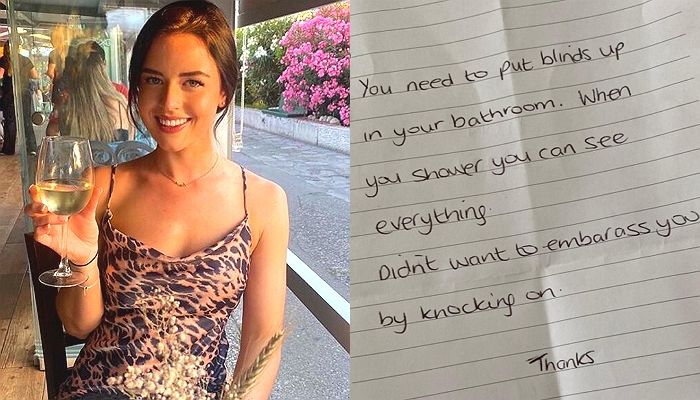 You need to put blinds up
in your bathroom. When
you shower you can see
everything.
Didn't want to embarass you
by knocking on.
Thanks